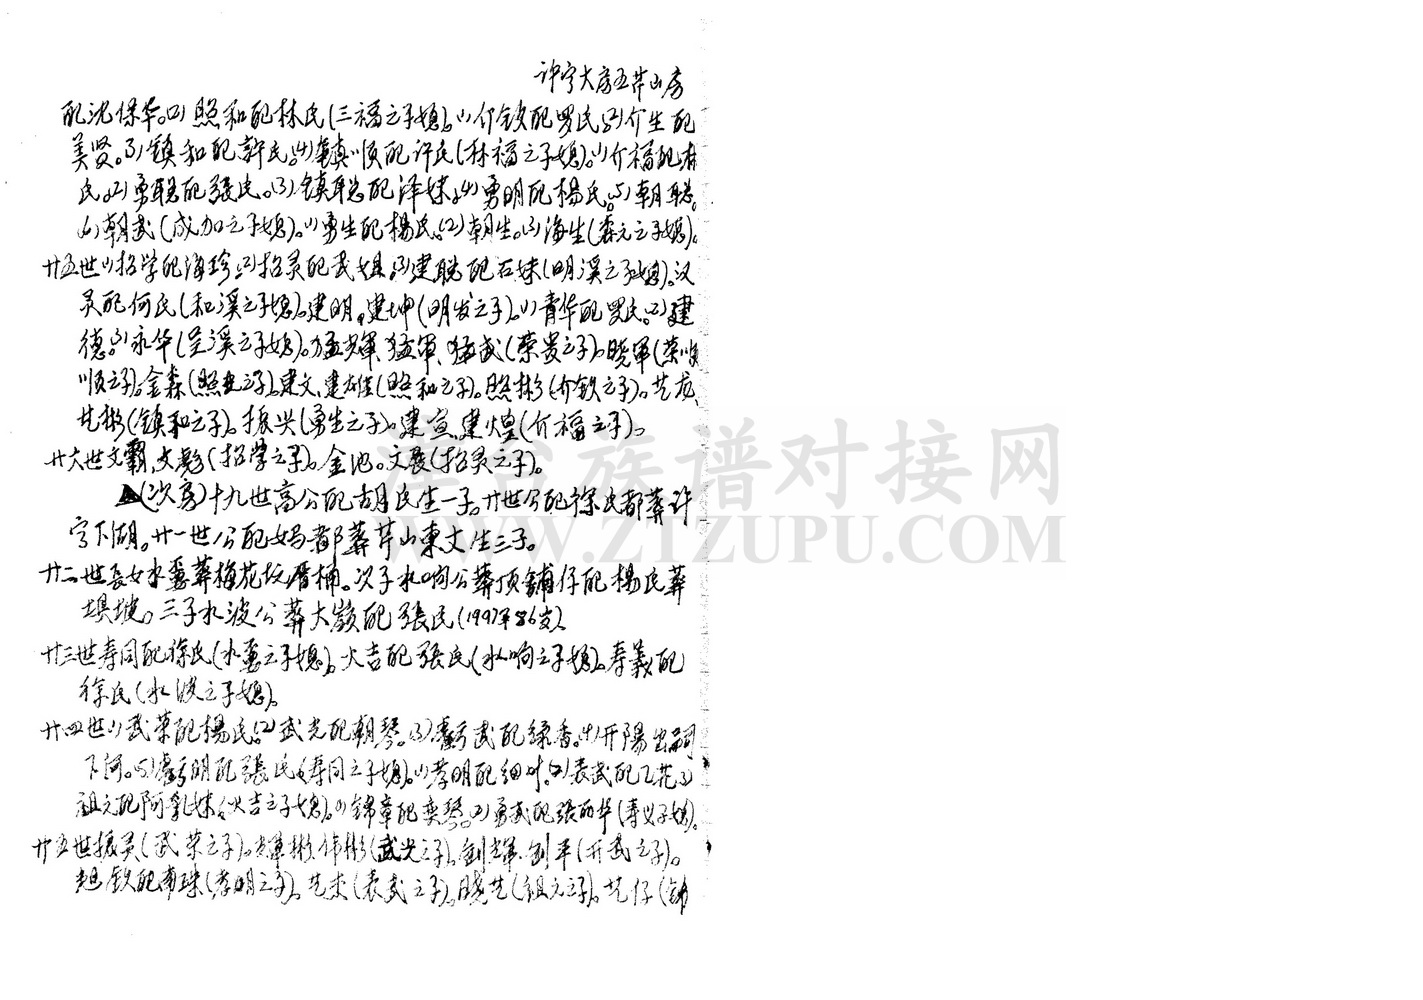 许宁大房五芹山房
配沈保华。(2)照和配林氏(三福之子媳)。(1)介钦配罗氏。(2)介生配
美贤。(3)镇和配许氏。(4)镇顺配许氏(林福之子媳)。(1)介福配林
氏。(2)勇聪配張氏。(3)镇聪配泽妹。(4)勇明配楊氏。(5)朝聪。
(6)朝武(成加之子媳)。(1)勇生配楊氏。(2)朝生。(3)海生(森元之子媳)。
廿五世(1)招学配海珍。(2)招灵配武娟。(3)建聪配石妹(明溪之子媳)。汉
灵配何氏(和溪之子媳)。建明。建坤(明发之子)。(1)青华配罗氏。(2)建
德。(3)永华(呈溪之子媳)。猛輝、猛軍、猛武(荣贵之子)。晓軍(荣顺
顺之子)。金森(照忠之子)。建文、建雄(照和之子)。照彬(介钦之子)。艺龙、
艺彬(镇和之子)。振兴(勇生之子)。建宣、建煌(介福之子)。
廿六世文霸、文彪(招学之子)。金池。文展(招灵之子)。
(次房)十九世高公配胡氏生一子。廿世公配徐氏都葬许
宁下湖。廿一世公配妈都葬芹山東丈生三子。
廿二世長女水勇葬梅花坟厝桶。次子水响公葬顶鋪仔配楊氏葬
埧坡。三子水波公葬大嶺配張氏(1997年86岁)。
廿三世寿同配徐氏(水勇之子媳)。火吉配張氏(水响之子媳)。寿義配
徐氏(水波之子媳)。
廿四世(1)武荣配楊氏。(2)武光配朝琴。(3)武配绿香。(4)开陽出嗣
下河。(5)明配張氏(寿同之子媳)。(1)孝明配细。(2)表武配乙花。(3)
祖元配阿乳妹(火吉之子媳)。(1)錦章配奕琴。(2)勇武配張丽华(寿义子媳)。
廿五世振灵(武荣之子)。輝彬、伟彬(武光之子)。剑輝、剑平(开武之子)。
钦配南珠(孝明之子)。艺杰(表武之子)。晓艺(组元之子)。艺仔(錦
库台族谱对接网
WWW.ZTZUPU.COM